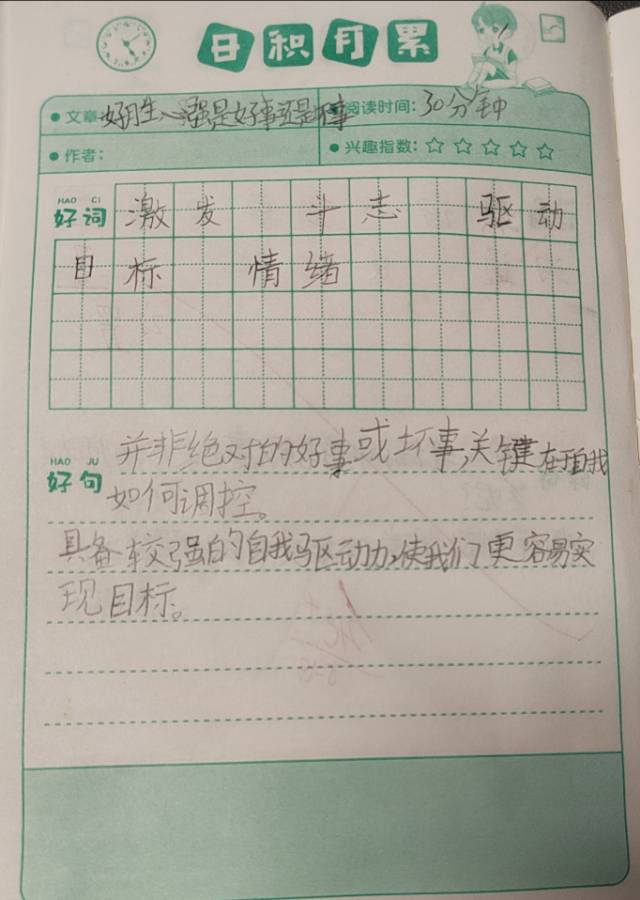 日积月累
文章:好胜心强是好事还是坏事 阅读时间:30分钟
作者: 兴趣指数:☆☆☆☆☆
HAO CI
好词 激发 斗志 驱动
目标 情绪
并非绝对的好事或坏事,关键在于自我
HAO JU
好句 如何调控。
具备较强的自我驱动力,使我们更容易实
现目标。